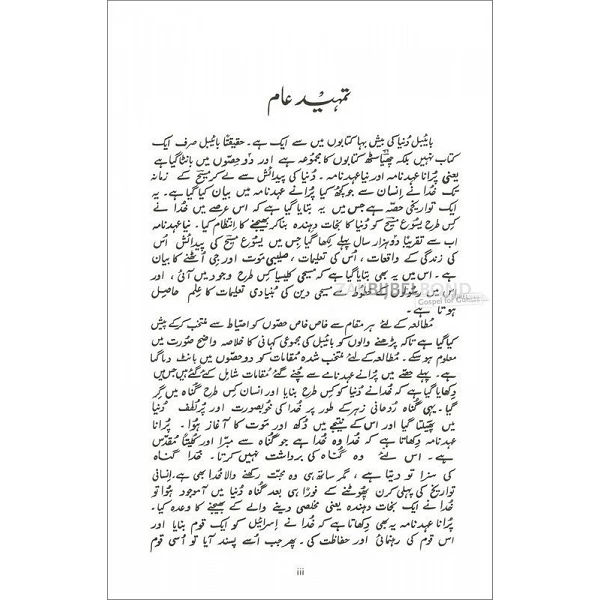 تمہیدِ عام
بائبل دُنیا کی بیش بہا کتابوں میں سے ایک ہے۔ حقیقتاً بائبل صرف ایک
کتاب نہیں بلکہ چھیاسٹھ کتابوں کا مجموعہ ہے اور دو حِصّوں میں بانٹا گیا ہے
یعنی پُرانا عہدنامہ اور نیا عہدنامہ۔ دُنیا کی پیدائش سے لے کر مسیح کے زمانہ
تک خُدا نے اِنسان سے جو کچھ کہا پُرانے عہدنامہ میں بیان کیا گیا ہے۔ یہ
ایک تواریخی حصّہ ہے جس میں یہ بتایا گیا ہے کہ اس عرصے میں خُدا نے
کِس طرح یسُوع مسیح کو دُنیا کا نجات دہندہ بنا کر بھیجنے کا انتظام کیا۔ نیا عہدنامہ
اب سے تقریباً دو ہزار سال پہلے لِکھا گیا جس میں یسُوع مسیح کی پیدائش اُس
کی زندگی کے واقعات، اُس کی تعلیمات، صلیبی موت اور جی اُٹھنے کا بیان
ہے۔ اس میں یہ بھی بتایا گیا ہے کہ مسیحی کلیسیا کِس طرح وجود میں آئی، اور
اِس میں رسُولوں کے خطُوط سے مسیحی دین کی بُنیادی تعلیمات کا عِلم حاصِل
ہوتا ہے۔
مُطالعہ کے لئے ہر مقام سے خاص خاص حصّوں کو احتیاط سے مُنتخب کر کے پیش
کیا گیا ہے تاکہ پڑھنے والوں کو بائبل کی مجموعی کہانی کا خلاصہ واضح صُورت میں
معلوم ہو سکے۔ مُطالعہ کے لئے مُنتخب شُدہ مقامات کو دو حصّوں میں بانٹ دیا گیا
ہے۔ پہلے حصّے میں پُرانے عہدنامے سے چُنے گئے مقامات شامِل کئے گئے ہیں جن میں
دِکھایا گیا ہے کہ خُدا نے دُنیا کو کِس طرح بنایا اور انسان کِس طرح گُناہ میں گِر
گیا۔ یہی گُناہ رُوحانی زہر کے طور پر خُدا کی خُوبصورت اور پُرلُطف دُنیا
میں پھیلتا گیا اور اس کے نتیجے میں دُکھ اور موت کا آغاز ہُوا۔ پُرانا
عہدنامہ دِکھاتا ہے کہ خُدا وہ خُدا ہے جو گناہ سے مبّرا اور کُلیتاً مُقدّس
ہے۔ اِس لئے وہ گناہ کی برداشت نہیں کرتا۔ خُدا گناہ
کی سزا تو دیتا ہے، مگر ساتھ ہی وہ محبّت رکھنے والا خُدا بھی ہے۔ اِنسانی
تواریخ کی پہلی کرن پھُوٹنے کے فوراً ہی بعد گناہ دُنیا میں آموجود ہُوا تو
خُدا نے ایک نجات دہندہ یعنی مخلصی دینے والے کے بھیجنے کا وعدہ کیا۔
پُرانا عہدنامہ یہ بھی دِکھاتا ہے کہ خُدا نے اِسرائیل کو ایک قوم بنایا اور
اس قوم کی رہنمائی اور حفاظت کی۔ پھر جب اُسے پسند آیا تو اُسی قوم
iii